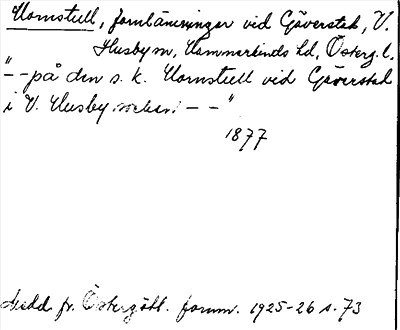 Kornstull, fornlämningar vid Gäverstad, V.
Husby sn, Hammarkinds hd, Österg. l.
"--på den s. k. Kornstull vid Gäverstad
i V. Husby socken --"
1877
Medd. fr. Östergötl. fornm. 1925-26 s. 73